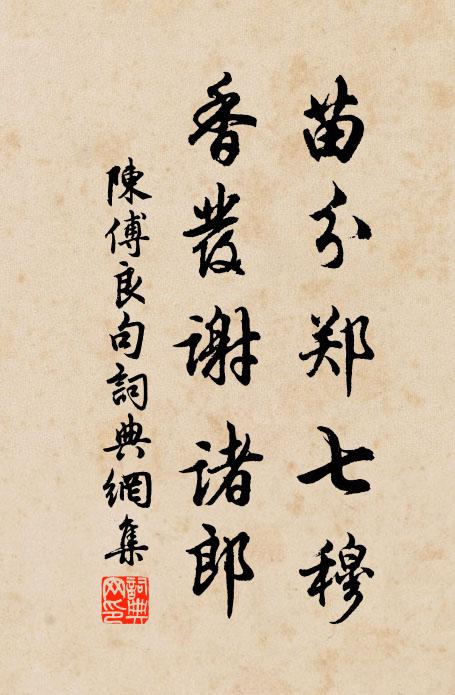 苗分郑七穆
香發谢诸郎
陳傅良句詞典網集
詞典网印